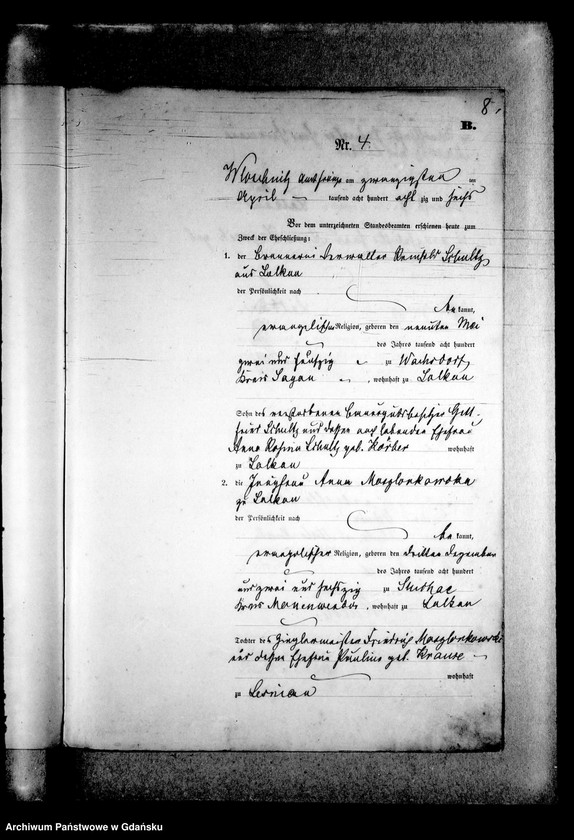 8.
B.
Nr. 4.
am zwanzigsten
April tausend acht hundert acht zig und sechs
Vor dem unterzeichneten Standesbeamten erschienen heute zum
Zweck der Eheschließung:
1. der Brennerei Verwalter Reinhold Schultz
aus Lalkau
der Persönlichkeit nach
be kannt,
evangelischer Religion, geboren den neunten Mai
des Jahres tausend acht hundert
zwei und fünfzig zu Wachsdorf,
Kreis Sagan, wohnhaft zu Lalkau
Sohn des verstorbenen Bauergutsbesitzer Gott-
fried Schultz und dessen noch lebenden Ehefrau
Anna Rosina Schultz geb. Körber wohnhaft
zu Lalkau
2. die Jungfrau Anna
zu Lalkau
der Persönlichkeit nach
be kannt,
evangelischer Religion, geboren den dritten Dezember
des Jahres tausend acht hundert
und zwei und sechszig zu
Kreis Marienwerder, wohnhaft zu Lalkau
Tochter des Zieglermeister Friedrich
und dessen Ehefrau Pauline geb. Krause
wohnhaft
zu Lesnian
Archiwum Państwowe w Gdańsku